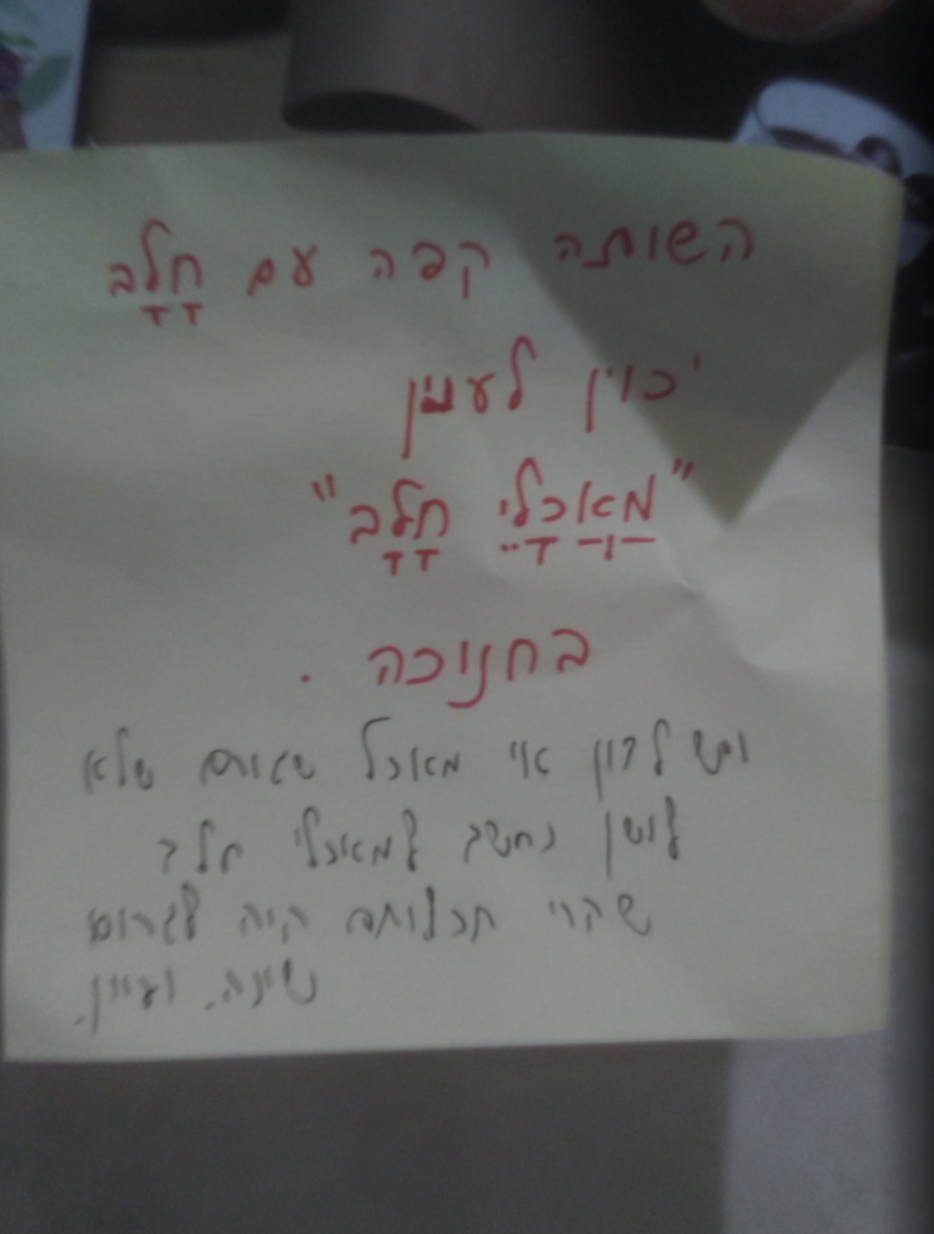 השותה קפה עם חָלָב
יכוין לענין
"מַאֲכָלֵי חָלָב"
בחנוכה.
ויש לדון אי מאכל שגורם שלא
לישן נחשב למאכלי חלב
שהרי תכליתם היה לגרום
שינה. ועיין.